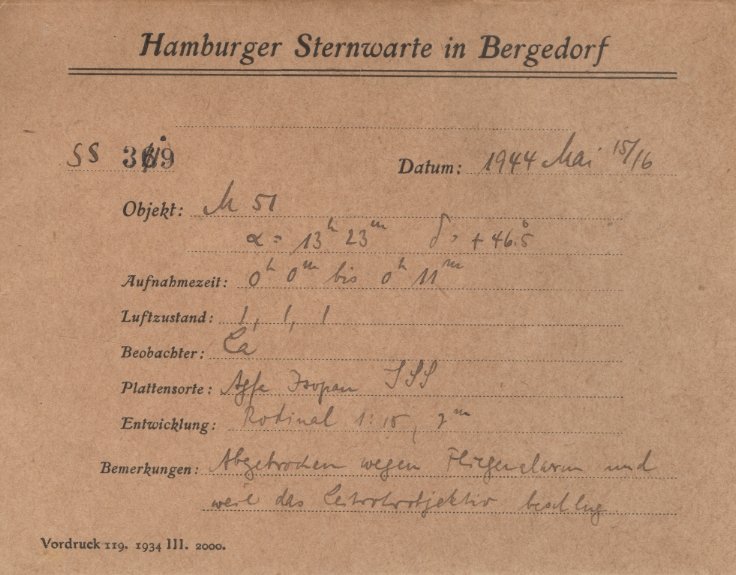 Hamburger Sternwarte in Bergedorf
SS 369 Datum: 1944 Mai 15/16
Objekt: M 51
α = 13h 23m δ = + 46.°5
Aufnahmezeit: 0h 0m bis 0h 11m
Luftzustand: 1, 1, 1
Beobachter: La
Plattensorte: Agfa Isopan ISS
Entwicklung: Rodinal 1:15, 7m
Bemerkungen: Abgebrochen wegen Fliegeralarm und
weil das Leitrohrobjektiv beschlug.
Vordruck 119. 1934 III. 2000.